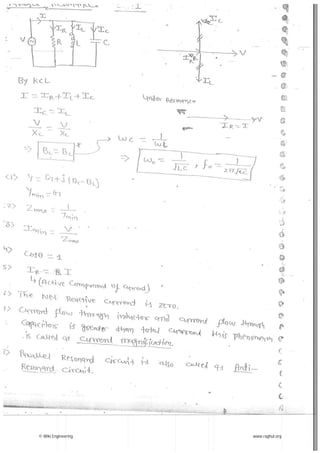 I
I_R I_L I_C
V R L C
I_C
V
I_R
I_L
By KCL
I = I_R + I_L + I_C
Under Resonance
I_C = I_L
V
I_R = I
V/X_C = V/X_L
ωC = 1/ωL
⇒ B_L = B_C
⇒ ω_o = 1/√LC , f_o = 1/2π√LC
<1> Y = G + j(B_C - B_L)
Y_min = G
2> Z_max = 1/Y_min
3> I_min = V/Z_max
4> Cosθ = 1
5> I_R = I
↳ (Active Component of Current)
The Net Reactive Current is zero.
Current flow through inductor and current flow through
Capacitors is greater than total current this phenomenon
is called as current magnification.
Parallel Resonand circuit is also called as Anti-
Resonand circuit.
© Wiki Engineering
www.raghul.org